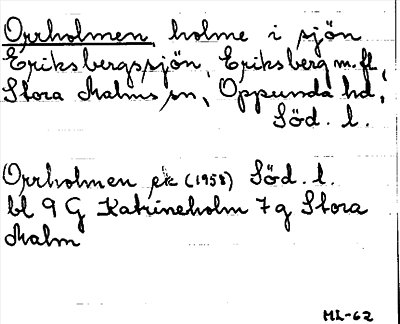 Orrholmen holme i sjön
Eriksbergssjön, Eriksberg m.fl.,
Stora Malms sn, Oppunda hd,
Söd. l.
Orrholmen ek (1958) Söd. l.
bl 9 G Katrineholm 7 g Stora
Malm
ML-62